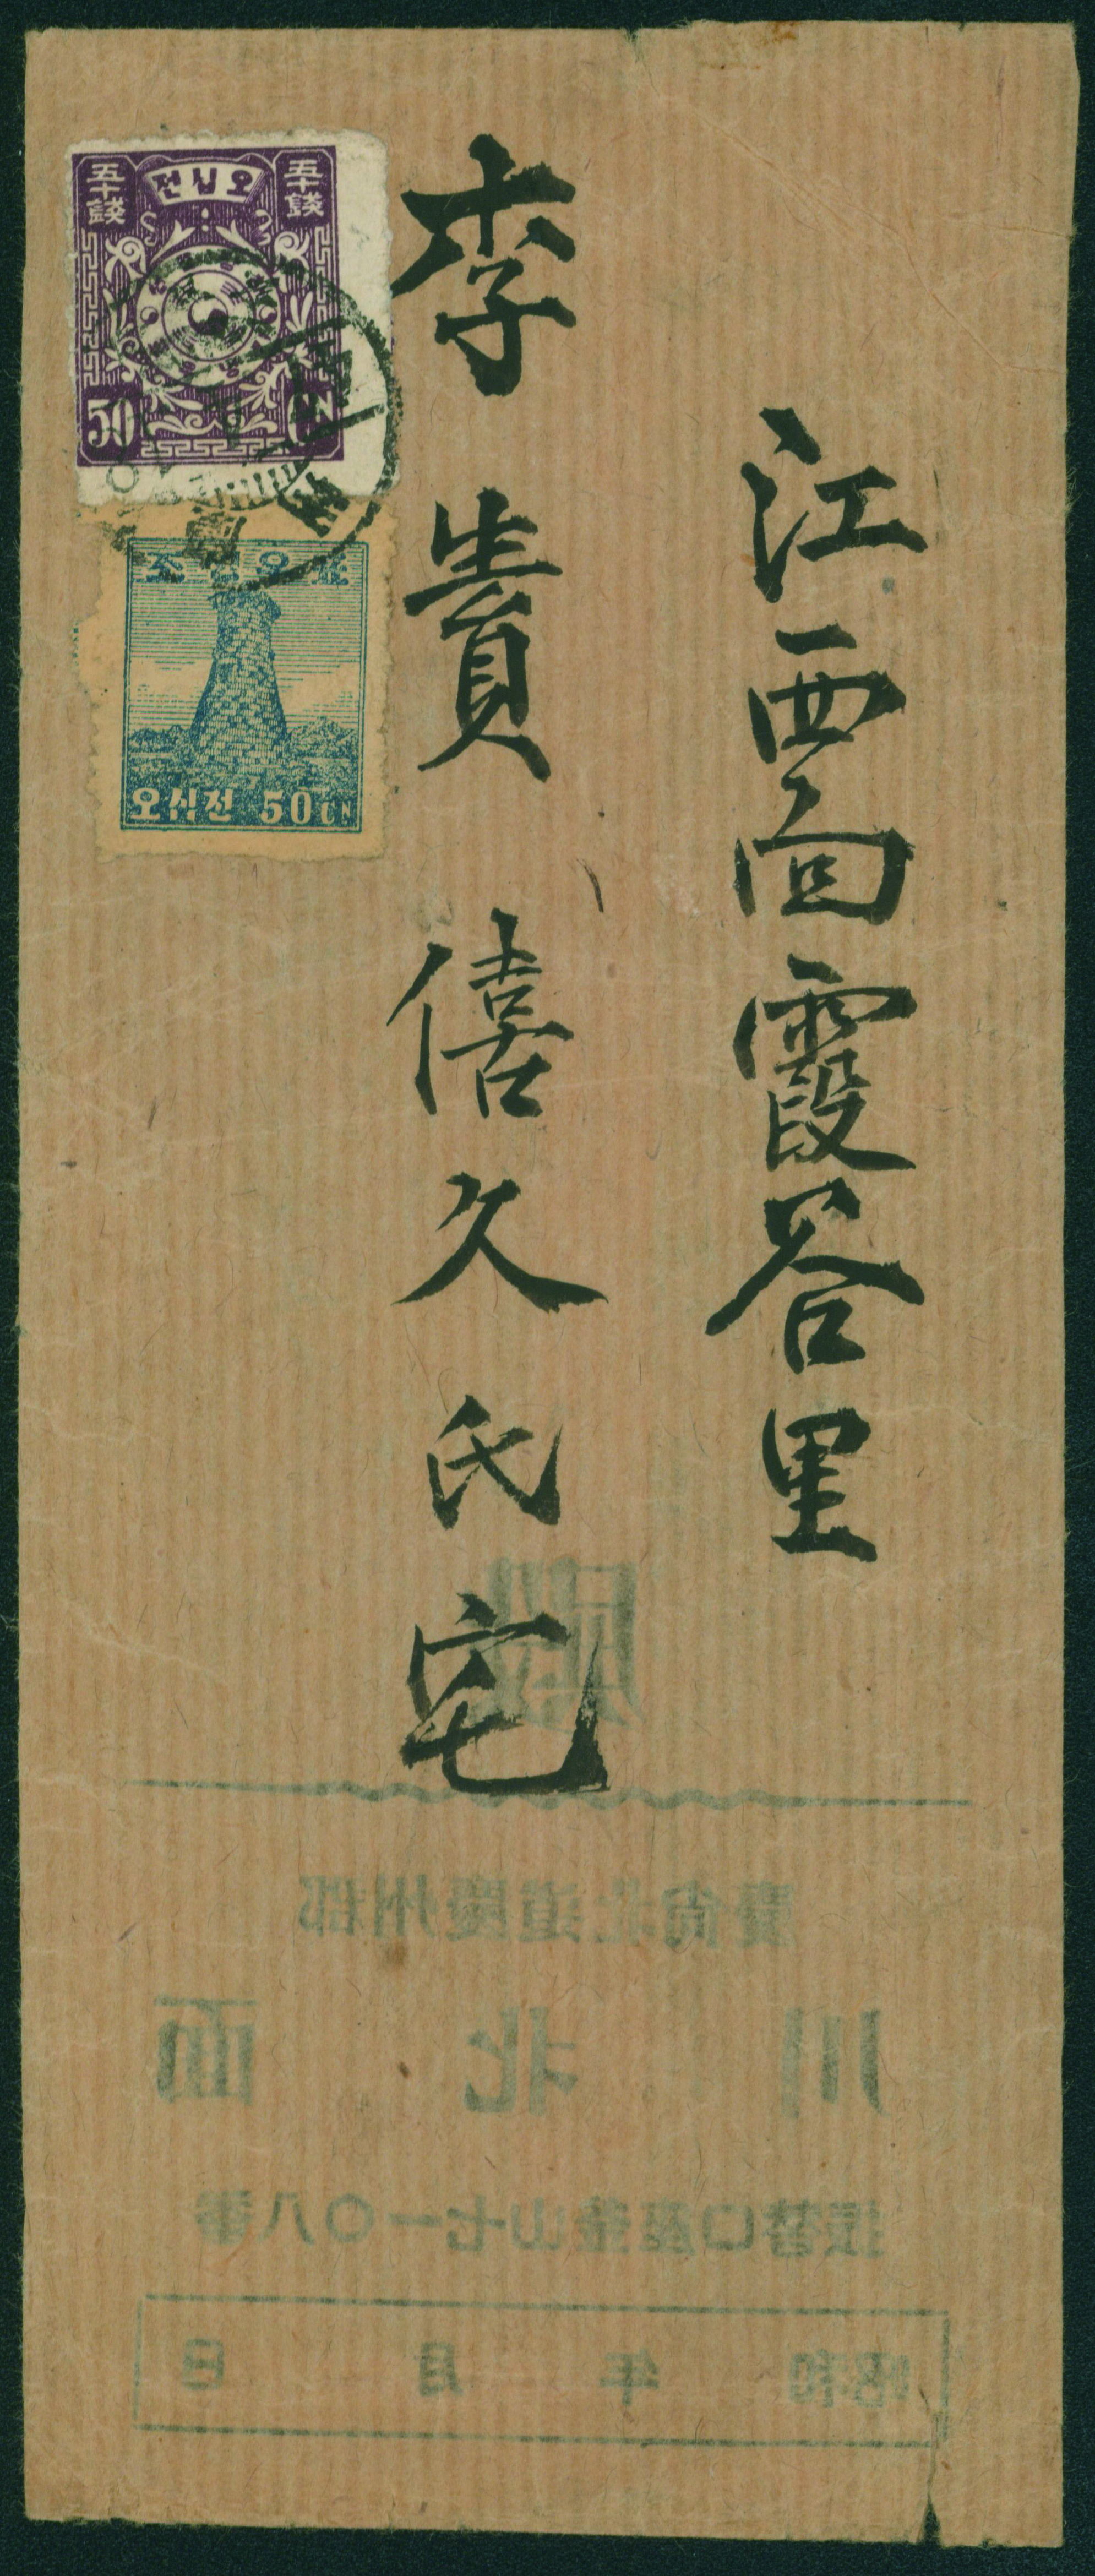 江西面霞谷里
李貴僖久氏宅
五十錢
전십오
五十錢
50 CN
조선우표
오십전 50 CN
慶尙北道慶州郡
川北面
振替口座釜山七一〇八番
昭和 年 月 日